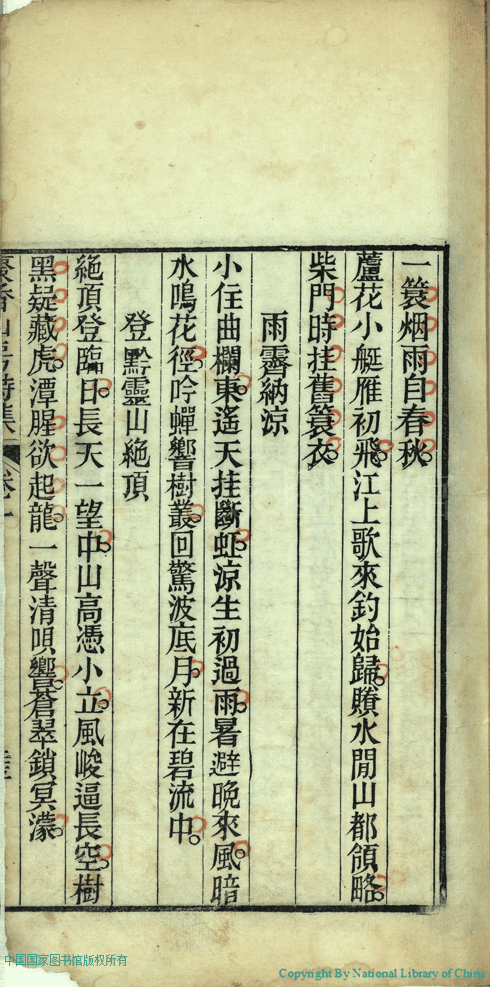 一簑烟雨自春秋
蘆花小艇雁初飛江上歌來釣始歸賸水閒山都領略
柴門時挂舊簑衣
雨霽納凉
小住曲欄東遙天挂斷虹凉生初過雨暑避晚來風暗
水鳴花徑吟蟬響樹叢回驚波底月新在碧流中
登黔靈山絶頂
絶頂登臨日長天一望中山高憑小立風峻逼長空樹
黑疑藏虎潭腥欲起龍一聲清唄響蒼翠鎖冥濛
香山 詩集 卷一
中国国家图书馆版权所有
Copyright By National Library of China